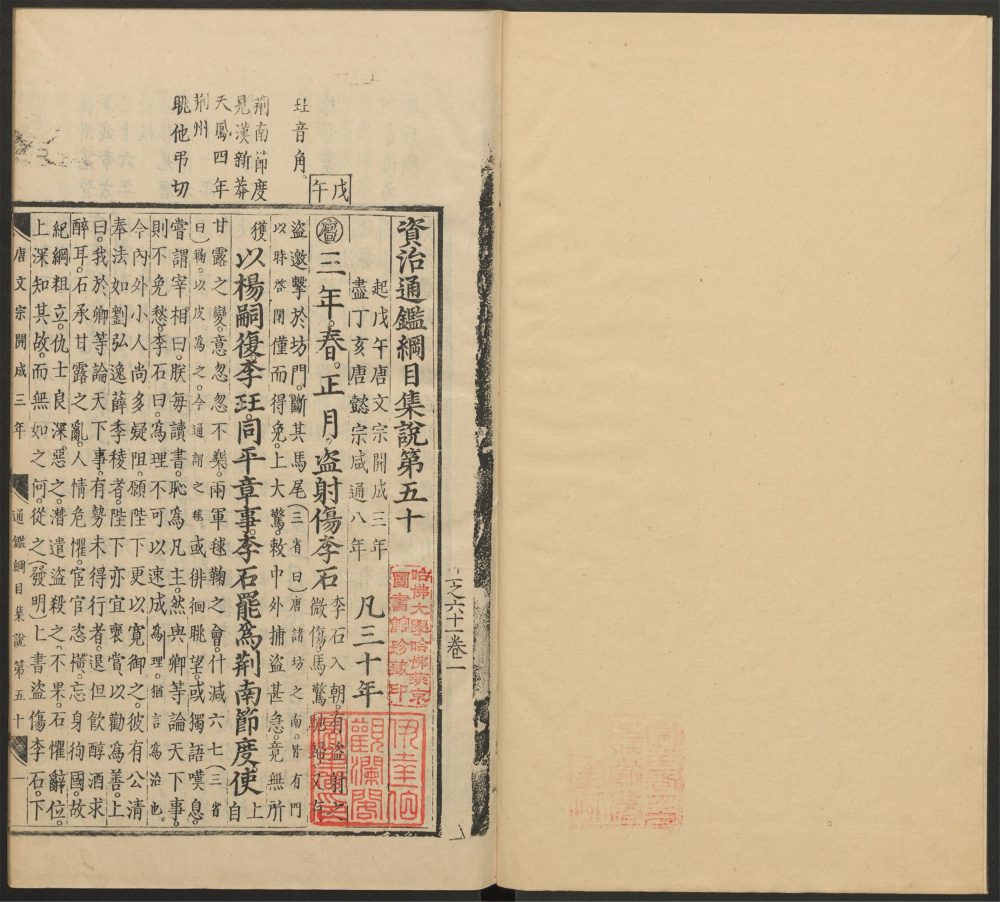 資治通鑑綱目集說第五十
起戊午唐文宗開成三年
盡丁亥唐懿宗咸通八年
凡三十年
戊午
三年春正月盜射傷李石
李石入朝有盜射之
微傷馬驚馳歸又有
盜邀擊於坊門斷其馬尾(三省曰)唐諸坊之南皆有門
以時啓閉僅而得免上大驚敕中外捕盜甚急竟無所
獲以楊嗣復李珏同平章事李石罷爲荆南節度使
上自
甘露之變意忽忽不樂兩軍毬鞠之會什減六七(三省
曰)鞠以皮爲之今通謂之毬或徘徊眺望或獨語嘆息
嘗謂宰相曰朕每讀書恥爲凡主然與卿等論天下事
則不免愁李石曰爲理不可以速成爲理猶言爲治也
今內外小人尚多疑阻願陛下更以寬御之彼有公清
奉法如劉弘逸薛季稜者陛下亦宜襃賞以勸爲善上
曰我於卿等論天下事有勢未得行者退但飲醇酒求
醉耳石承甘露之亂人情危懼宦官恣橫忘身徇國故
紀綱粗立仇士良深惡之潛遣盜殺之不果石懼辭位
上深知其故而無如之何從之(發明)上書盜傷李石下
珏音角
荊南節度
見漢新莽
天鳳四年
荊州
眺他弔切
唐文宗開成三年
通鑑綱目集說第五十
一
之六十一卷一
哈佛大學哈佛燕京
圖書館珍藏印
觀瀾閣